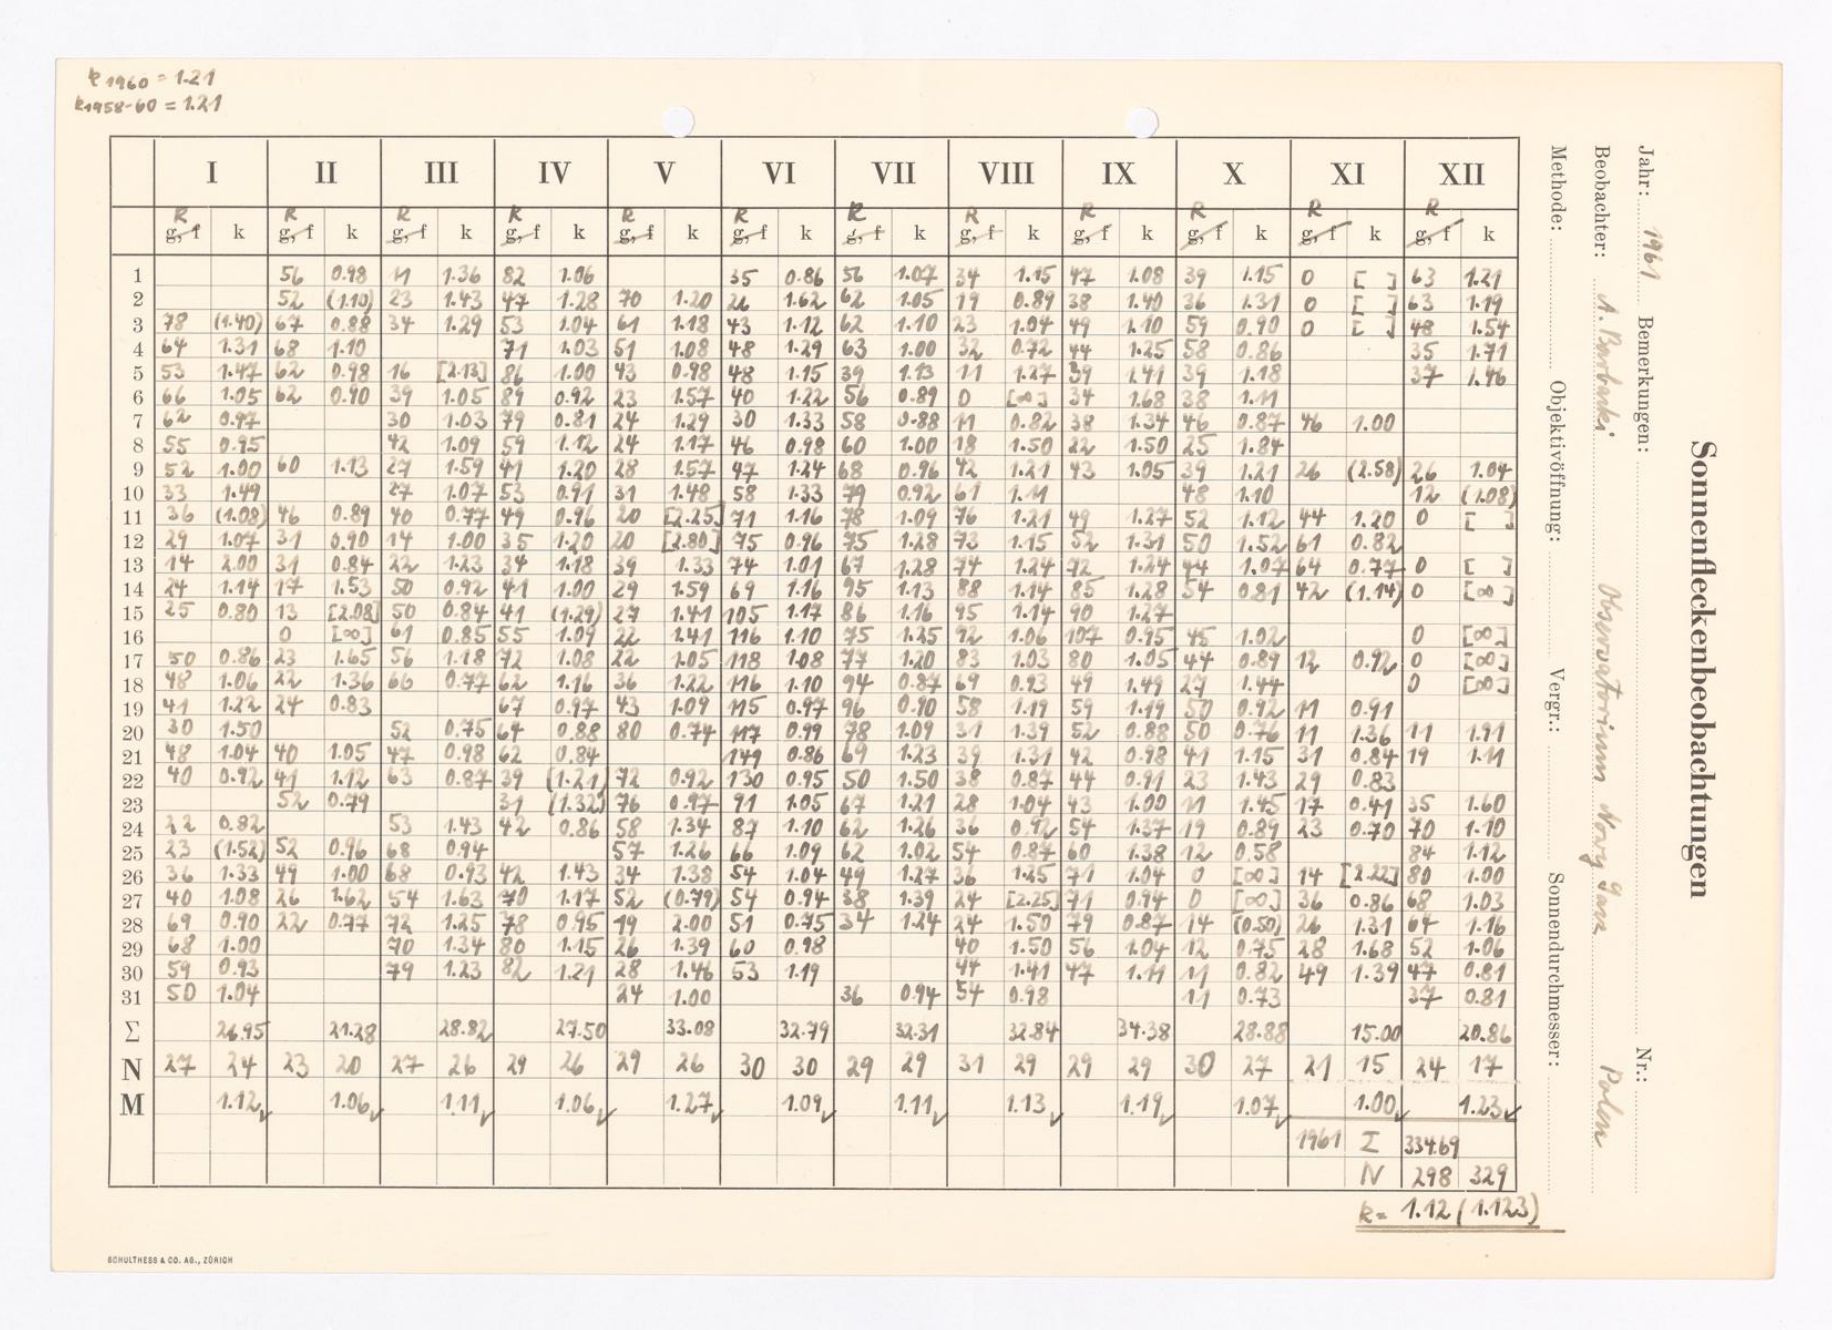 k1960 = 1.21
k1958-60 = 1.21
Sonnenfleckenbeobachtungen
Jahr: 1961 Bemerkungen: Nr.:
Beobachter: A. Barbacki Observatorium Nowy Sącz Polen
Methode: Objektivöffnung: Vergr.: Sonnendurchmesser:
I II III IV V VI VII VIII IX X XI XII
R R R R R R R R R R R R
g, f k g, f k g, f k g, f k g, f k g, f k g, f k g, f k g, f k g, f k g, f k g, f k
1 56 0.98 11 1.36 82 1.06 35 0.86 56 1.07 34 1.15 47 1.08 39 1.15 0 [ ] 63 1.21
2 52 (1.10) 23 1.43 47 1.28 70 1.20 26 1.62 62 1.05 19 0.89 38 1.40 36 1.31 0 [ ] 63 1.19
3 78 (1.40) 67 0.88 34 1.29 53 1.04 61 1.18 43 1.12 62 1.10 23 1.04 49 1.10 59 0.90 0 [ ] 48 1.54
4 64 1.31 68 1.10 71 1.03 51 1.08 48 1.29 63 1.00 32 0.72 44 1.25 58 0.86 35 1.71
5 53 1.47 62 0.98 16 [2.13] 86 1.00 43 0.98 48 1.15 39 1.13 11 1.27 39 1.41 39 1.18 37 1.46
6 66 1.05 62 0.90 39 1.05 89 0.92 23 1.57 40 1.22 56 0.89 0 [∞] 34 1.68 38 1.11
7 62 0.97 30 1.03 79 0.81 24 1.29 30 1.33 58 0.88 11 0.82 38 1.34 46 0.87 46 1.00
8 55 0.95 42 1.09 59 1.12 24 1.17 46 0.98 60 1.00 18 1.50 22 1.50 25 1.84
9 52 1.00 60 1.13 27 1.59 41 1.20 28 1.57 47 1.24 68 0.96 42 1.21 43 1.05 39 1.21 26 (2.58) 26 1.04
10 33 1.49 27 1.07 53 0.91 31 1.48 58 1.33 79 0.92 61 1.11 48 1.10 12 (1.08)
11 36 (1.08) 46 0.89 40 0.77 49 0.96 20 [2.25] 71 1.16 78 1.09 76 1.21 49 1.27 52 1.12 44 1.20 0 [ ]
12 29 1.07 31 0.90 14 1.00 35 1.20 20 [2.80] 75 0.96 75 1.28 73 1.15 52 1.31 50 1.52 61 0.82
13 14 2.00 31 0.84 22 1.23 34 1.18 39 1.33 74 1.01 67 1.28 74 1.24 72 1.24 44 1.07 64 0.77 0 [ ]
14 24 1.14 17 1.53 50 0.92 41 1.00 29 1.59 69 1.16 95 1.13 88 1.14 85 1.28 54 0.81 42 (1.14) 0 [∞]
15 25 0.80 13 [2.08] 50 0.84 41 (1.29) 27 1.41 105 1.17 86 1.16 95 1.14 90 1.27
16 0 [∞] 61 0.85 55 1.09 22 1.41 116 1.10 75 1.25 92 1.06 107 0.95 45 1.02 0 [∞]
17 50 0.86 23 1.65 56 1.18 72 1.08 22 1.05 118 1.08 77 1.20 83 1.03 80 1.05 44 0.89 12 0.92 0 [∞]
18 48 1.06 22 1.36 66 0.77 62 1.16 36 1.22 116 1.10 94 0.87 69 0.93 49 1.49 27 1.44 0 [∞]
19 41 1.22 24 0.83 67 0.97 43 1.09 115 0.97 96 0.90 58 1.19 59 1.19 50 0.92 11 0.91
20 30 1.50 52 0.75 64 0.88 80 0.74 117 0.99 78 1.09 31 1.39 52 0.88 50 0.76 11 1.36 11 1.91
21 48 1.04 40 1.05 47 0.98 62 0.84 149 0.86 69 1.23 39 1.31 42 0.98 41 1.15 31 0.84 19 1.11
22 40 0.92 41 1.12 63 0.87 39 (1.21) 72 0.92 130 0.95 50 1.50 38 0.87 44 0.91 23 1.43 29 0.83
23 52 0.79 31 (1.32) 76 0.97 91 1.05 67 1.21 28 1.04 43 1.00 11 1.45 17 0.41 35 1.60
24 22 0.82 53 1.43 42 0.86 58 1.34 87 1.10 62 1.26 36 0.92 54 1.37 19 0.89 23 0.70 70 1.10
25 23 (1.52) 52 0.96 68 0.94 57 1.26 66 1.09 62 1.02 54 0.87 60 1.38 12 0.58 84 1.12
26 36 1.33 49 1.00 68 0.93 42 1.43 34 1.38 54 1.04 49 1.27 36 1.25 71 1.04 0 [∞] 14 [2.22] 80 1.00
27 40 1.08 26 1.62 54 1.63 70 1.17 52 (0.79) 54 0.94 38 1.39 24 [2.25] 71 0.94 0 [∞] 36 0.86 68 1.03
28 69 0.90 22 0.77 72 1.25 78 0.95 19 2.00 51 0.75 34 1.24 24 1.50 79 0.87 14 (0.50) 26 1.31 64 1.16
29 68 1.00 70 1.34 80 1.15 26 1.39 60 0.98 40 1.50 56 1.04 12 0.75 28 1.68 52 1.06
30 59 0.93 79 1.23 82 1.21 28 1.46 53 1.19 44 1.41 47 1.11 11 0.82 49 1.39 47 0.81
31 50 1.04 24 1.00 36 0.94 54 0.98 11 0.73 37 0.81
Σ 26.95 21.28 28.82 27.50 33.08 32.79 32.31 32.84 34.38 28.88 15.00 20.86
N 27 24 23 20 27 26 29 26 29 26 30 30 29 29 31 29 29 29 30 27 21 15 24 17
M 1.12 1.06 1.11 1.06 1.27 1.09 1.11 1.13 1.19 1.07 1.00 1.23
1961 Σ 334.69
N 298 329
k = 1.12 (1.123)
SCHULTHESS & CO. AG., ZÜRICH